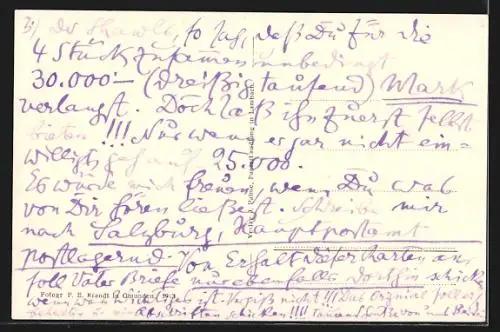 3) so sag, daß Du für die
4 Stück zusammen unbedingt
30.000·— (dreißigtausend) Mark
verlangst. Doch laß ihn zuerst selbst
bieten!!! Nur wenn er gar nicht ein=
willigt, geh auf 25.000.
Es würde mich freuen, wenn Du was
von Dir hören ließest. Schreibe mir
nach Salzburg, Hauptpostamt
postlagernd. Von Erhalt dieser Karten an
soll Vater Briefe nur ebenfalls dorthin schicken
wenn was ist. Vergiß nicht!!! Das Original soll er
behalten Abschriften schicken!!!! Tausend
Fotogr. F. E. Brandt in Gmunden, 1913